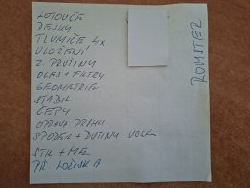 LETOVČE
DESKY
TLUMIČE 4x
ULOŽENÍ
2 PRUŽINY
OLEJ + FILTRY
GEOMETRIE
STABIL
ČEPY
OPRAVA PRAHU
SPODEK + DUTINY VOSK
STK + ME
PŘ. LOŽISKA
ROOMSTER